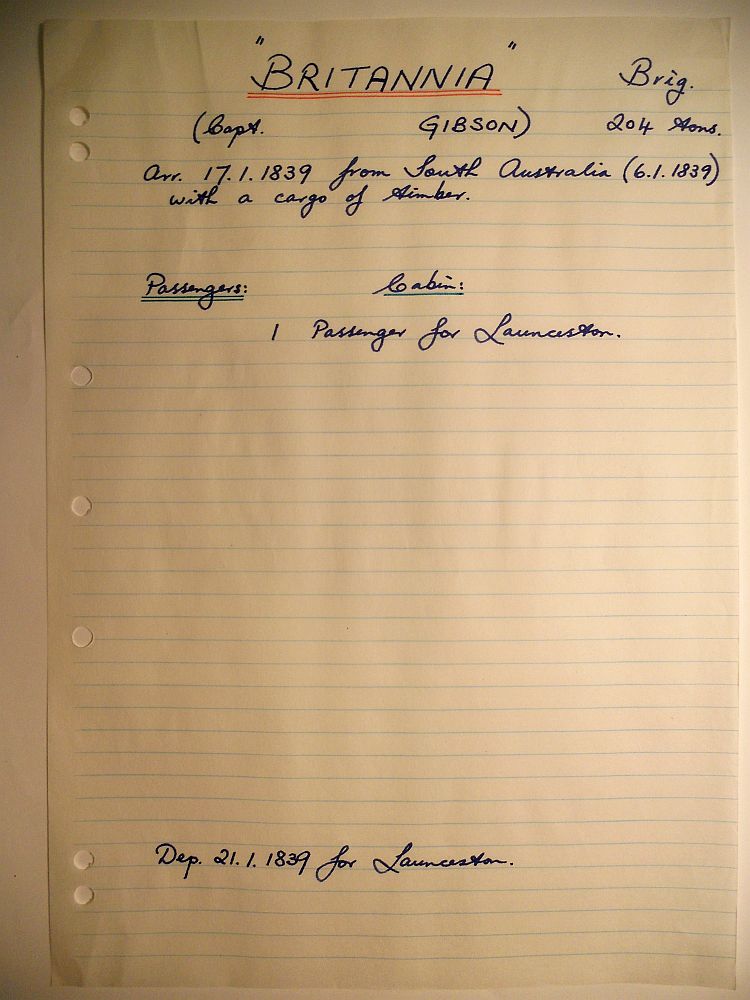 "BRITANNIA" Brig.
(Capt. GIBSON) 204 tons.
Arr. 17.1.1839 from South Australia (6.1.1839)
with a cargo of timber.
Passengers: Cabin:
1 Passenger for Launceston.
Dep. 21.1.1839 for Launceston.